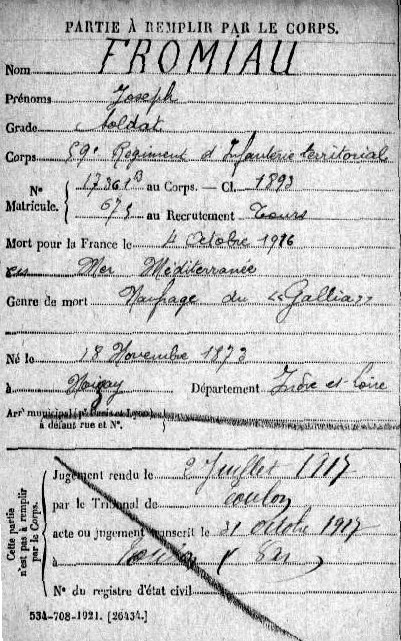 PARTIE À REMPLIR PAR LE CORPS.
Nom FROMIAU
Prénoms Joseph
Grade Soldat
Corps 59e Régiment d'Infanterie territorial
N° Matricule. 17361B au Corps. — Cl. 1893
675 au Recrutement Tours
Mort pour la France le 4 Octobre 1916
en Mer Méditerranée
Genre de mort Naufrage du "Gallia"
Né le 18 Novembre 1873
à Noizay Département Indre-et-Loire
Arrt municipal (pr Paris et Lyon), à défaut rue et N°.
Cette partie n'est pas à remplir par le Corps.
Jugement rendu le 2 Juillet 1917
par le Tribunal de Toulon
acte ou jugement transcrit le 31 octobre 1917
à Toulon (Var)
N° du registre d'état civil
534-708-1921. [26434.]